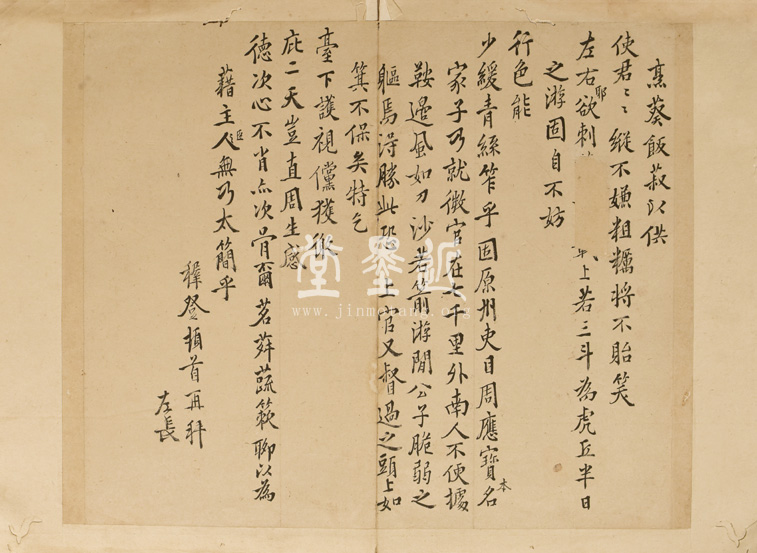 烹葵飯菽以供
使君使君縱不嫌粗糲將不貽笑
左右耶欲刺 上若三斗為虎丘半日
之游固自不妨
行色能
少緩青絲笮乎固原州吏目周應寶本名
家子乃就微官在七千里外南人不便據
鞍邊風如刀沙若箭游閒公子脆弱之
軀焉得勝此恐上官又督過之頭上如
箕不保矣特乞
臺下護視儻獲
庇二天豈直周生感
德次心不肖亦次骨爾茗荈蔬蔌聊以為
藉主人無乃太簡乎
穉登頓首再拜
左長
墨堂
www.jinmotang.org